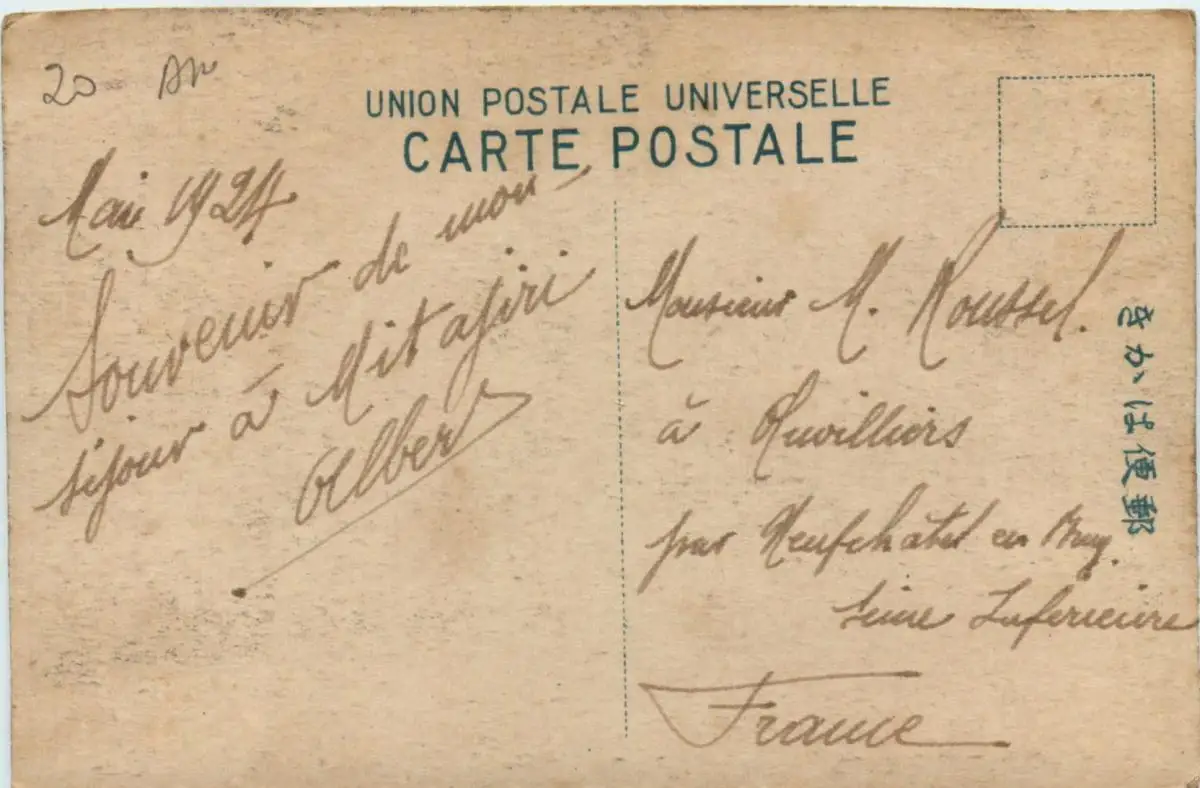 20
UNION POSTALE UNIVERSELLE
CARTE POSTALE
Mai 1924
Souvenir de mon
séjour à Mitajiri
Albert
Monsieur M. Roussel.
à Auvilliers
par Neufchâtel en Bray
Seine Inferieure
France
郵便はかき